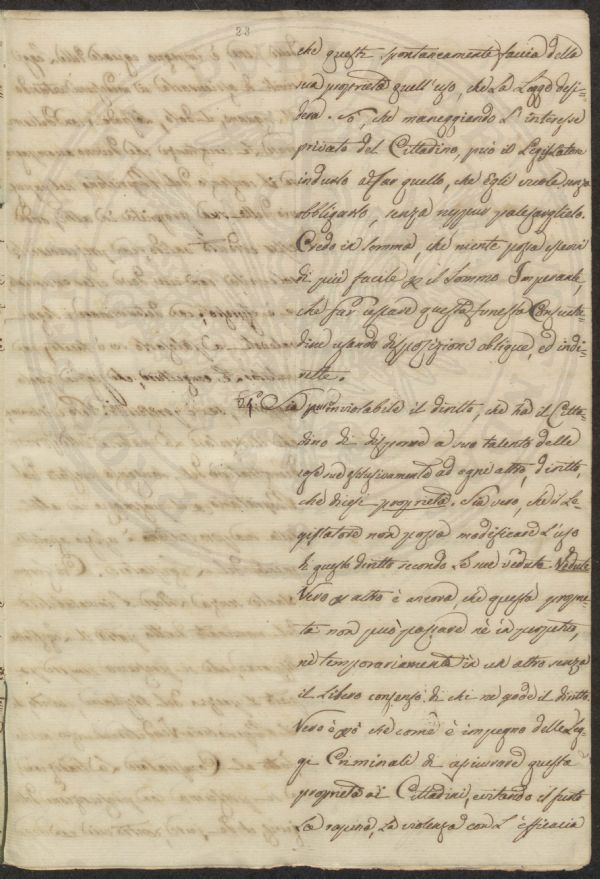 23
che questi spontaneamente faccia della
sua proprietà quell'uso, che la Legge desi-
dera. So, che maneggiando L'interesse
privato del Cittadino, può il Legislatore
indurlo a far quello, che Egli vuole senza
obbligarlo, senza neppur palesarglielo.
Credo in somma, che niente possa esservi
di più facile p il Sommo Imperante,
che far cessare questa funesta Consuetu-
dine usando disposizioni oblique, ed indi-
rette.
24° Sia pur inviolabile il diritto, che ha il Citta-
dino di disporre a suo talento delle
cose sue esclusivamente ad ogni altro, diritto,
che dicesi proprietà. Sia vero, che il Le-
gislatore non possa modificare L'uso
di questo diritto secondo Le sue vedute
Vero p altro è ancora, che questa proprie-
tà non può passare nè in perpetuo,
nè temporariamente in un altro senza
il Libero consenso di chi ne gode il diritto.
Vero è pò che come è impegno delle Leg-
gi Criminali di assicurare questa
proprietà ai Cittadini, evitando il furto
La rapina, La violenza con L'efficacia